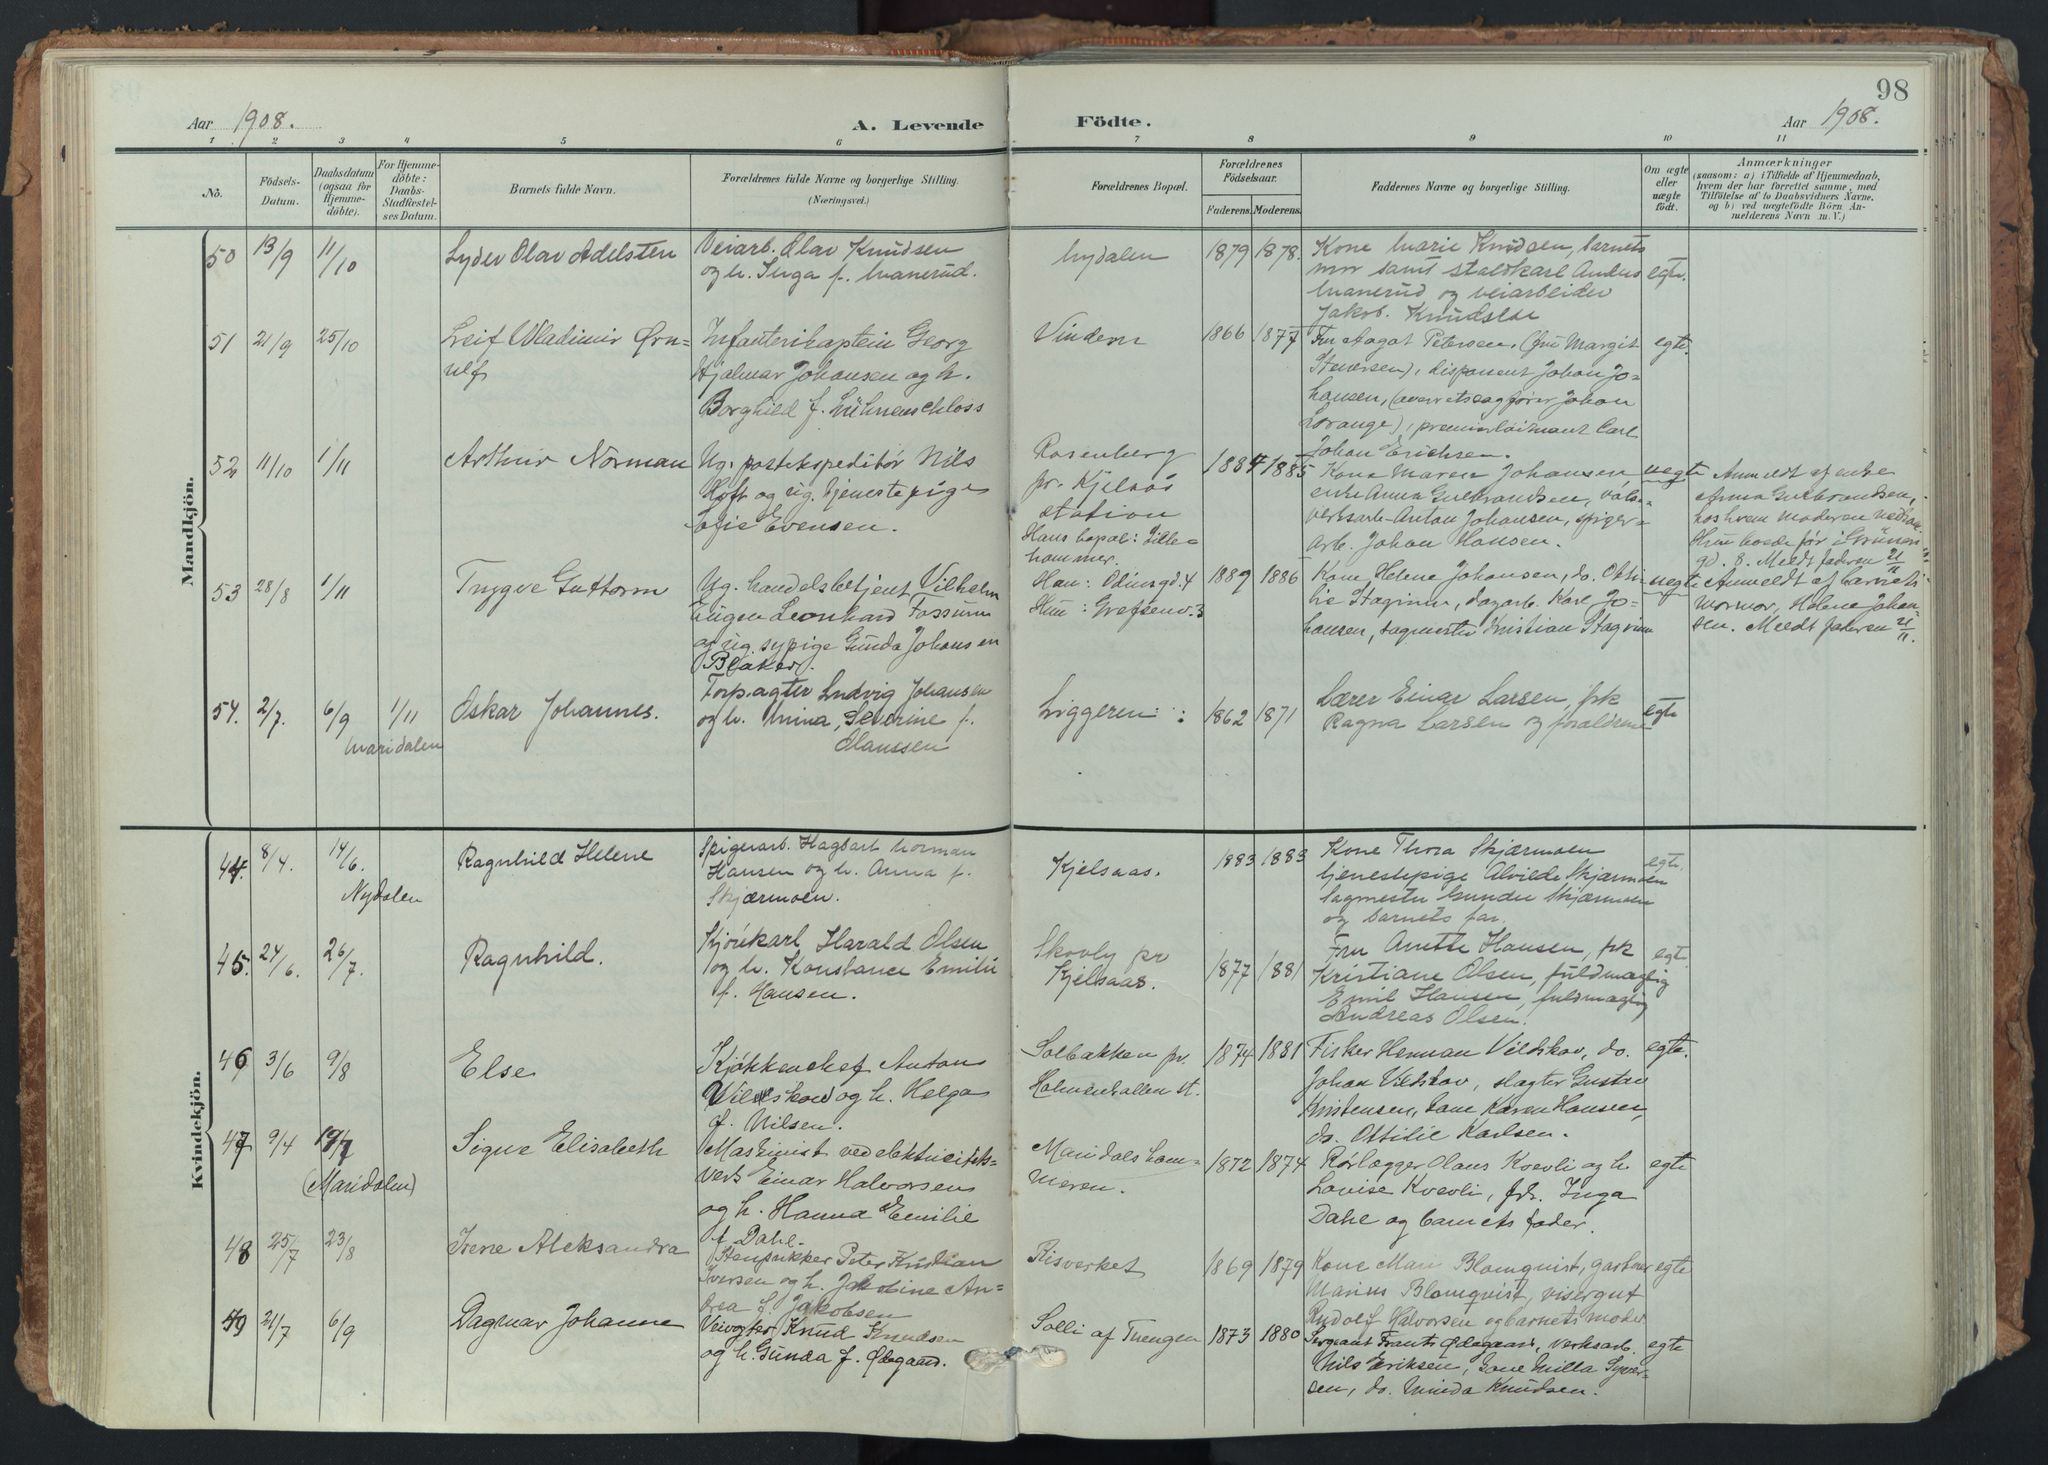 98
Aar 1908.
A. Levende Födte.
Aar 1908.
1 2 3 4 5 6 7 8 9 10 11
No.
Födsels-
Datum.
Daabsdatum
(ogsaa for
Hjemme-
döbte).
For Hjemme-
döbte:
Daabs-
Stadfæstel-
ses Datum.
Barnets fulde Navn.
Forældrenes fulde Navne og borgerlige Stilling.
(Næringsvei.)
Forældrenes Bopæl.
Forældrenes
Födselsaar.
Faderens. Moderens.
Faddernes Navne og borgerlige Stilling.
Om ægte
eller
uægte
födt.
Anmærkninger
(saasom: a) i Tilfælde af Hjemmedaab,
hvem der har forrettet samme, med
Tilföielse af to Daabsvidners Navne,
og b) ved uægtefödte Börn An-
melderens Navn m. V.)
Mandkjön.
50 13/9 11/10
Lyder Olav Adelsten
Veiarb. Olav Knudsen
og h. Inga f. Manerud.
Nydalen
1879 1878.
Kone Marie Knudsen, barnets
mor samt staldkarl Anders
Manerud og veiarbeider
Jakob. Knudsen
egte.
51 21/9 25/10
Leif Wladimir Ørn-
ulf
Infanterikaptein Georg
Hjalmar Johansen og h.
Borghild f. Lühnenschloss
Vindern
1866 1877
Fru Aagot Petersen, (fru Margit
Stenersen), disponent Johan Jo-
hansen, (overretssagfører Johan
Lorange), premierløitnant Carl
Johan Erichsen.
egte.
52 11/10 1/11
Arthur Norman
Ug. postekspeditør Nils
Hoft og ug. tjenestepige
Sofie Evensen.
Rosenberg
pr. Kjelsås
station
Hans bopæl: Lille-
hammer.
1884 1885
Kone Maren Johansen,
enke Anna Gulbrandsen, vals-
verksarb. Anton Johansen, spiger-
arb. Johan Hansen.
uegte
Anmeldt af enke
Anna Gulbrandsen,
hos hvem moderen nedkom.
Hun boede før i Grüners
gd. 8. Meldt faderen 21/11
53 28/8 1/11
Trygve Guttorm
Ug. handelsbetjent Vilhelm
Eugen Leonhard Fossum
og ug. sypige Gunda Johansen
Blaker.
Han: Odinsgd. 4
Hun: Grefsenv. 3
1889 1886
Kone Helene Johansen, do. Otti-
lie Stagrum, dagarb. Karl Jo-
hansen, sagmester Kristian Stagrum
uegte
Anmeldt af barnets
mormor, Helene Johan-
sen. Meldt faderen 21/11.
54. 2/7. 6/9 1/11
Maridalen
Oskar Johannes.
Forpagter Ludvig Johansen
og h. Mina, Severine f.
Olaussen
Liggeren :
1862 1871
Lærer Einar Larsen, frk
Ragna Larsen og forældrene
egte
Kvindekjön.
44. 8/4. 14/6.
Nydalen
Ragnhild Helene
Spigerarb. Hagbart Norman
Hansen og h. Anna f.
Skjærmoen.
Kjelsaas.
1883 1883
Kone Thora Skjærmoen
tjenestepige Alvilde Skjærmoen
sagmester Gunder Skjærmoen
og barnets far.
egte.
45. 24/6. 26/7.
Ragnhild.
Kjørekarl Harald Olsen
og h. Konstance Emilie
f. Hansen.
Skovly pr
Kjelsaas.
1877 1881
Fru Anette Hansen, frk
Kristiane Olsen, fuldmægtig
Emil Hansen, fuldmægtig
Andreas Olsen.
egte.
46 3/6 9/8
Else
Kjøkkenchef Anton
Vildskov og h. Helga
f. Nilsen.
Solbakken pr.
Holmenkollen st.
1874 1881
Fisker Herman Vildskov, do.
Johan Vildskov, slagter Gustav
Kristensen, kone Karen Hansen,
do. Ottilie Karlsen.
egte.
47 9/4 19/7
(Maridalen)
Signe Elisabeth
Maskinist ved elektricitets-
verk Einar Halvorsen
og h. Hanna Emilie
f. Dahl.
Maridalsham-
meren.
1872 1874
Rørlægger Olaus Kvevli og h.
Lovise Kvevli, frk. Inga
Dahl og barnets fader.
egte
48 25/7 23/8
Irene Aleksandra
Stenpukker Peter Kristian
Iversen og h. Jakobine An-
drea f. Jakobsen
Risverket
1869 1879
Kone Mari Blomqvist, gartner
Marius Blomqvist, visergut
Rudolf Halvorsen og barnets moder
egte
49 21/7 6/9
Dagmar Johanne
Veivogter Knud Knudsen
og h. Gunda f. Ødegaard.
Solli af Tuengen
1873 1880
Sergeant Frants Ødegaard, verksarb.
Nils Eriksen, Kone Milla Syver-
sen, do. Minda Knudsen.
egte